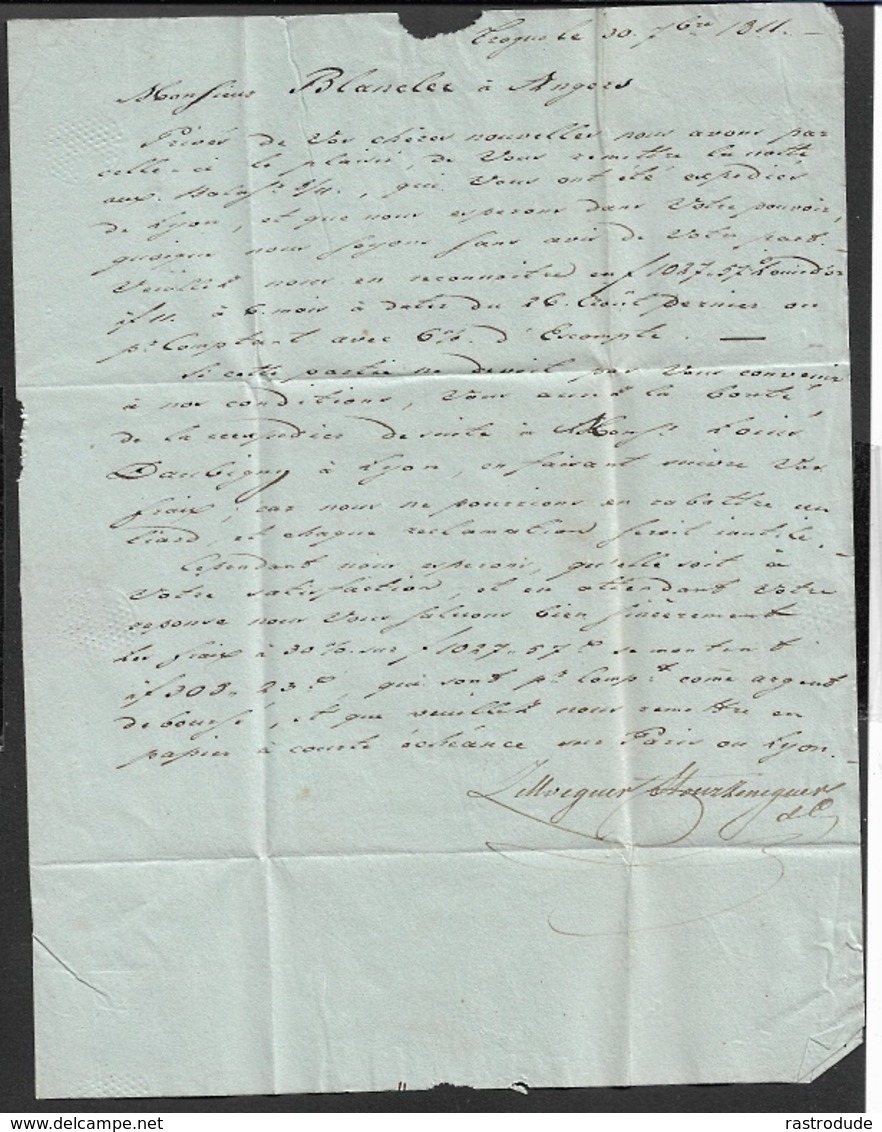 Trogue le 30. 7bre 1811.
Monsieur Blanclee à Angers
Privés de Vos chères nouvelles nous avons par
celle-ci le plaisir, de Vous remettre la notte
aux, qui Vous ont été expediés
de Lyon, et que nous esperons dans Votre pouvoir,
quoique nous soyons sans avis de Votre part.
Veuillez nous en reconnoitre en f 1027.57 Louis d'or
à f 11. à 6. mois à dater du 26. Août dernier ou
pr Comptant avec 6%. d'Escompte. —
Si cette partie ne devoit pas Vous convenir
à nos conditions, Vous aurez la bonté,
de la de suite à Monsr. Louis
Daubigny à Lyon, en faisant suivre Vos
fraix; car nous ne pourrions en rabattre un
liard, et chaque reclamation seroit inutile.
Cependant nous esperons, qu'elle soit à
Votre satisfaction, et en attendant Votre
reponse nous Vous saluons bien sincèrement
Les fraix à 30%. sur f 1027.57 se montent
à f 308.23, qui sont pr Compt come argent
deboursé, et que veuillez nous remettre en
papier à courte échéance sur Paris ou Lyon.
Zellweguer Stourzeneguer
& Co
rastrodude